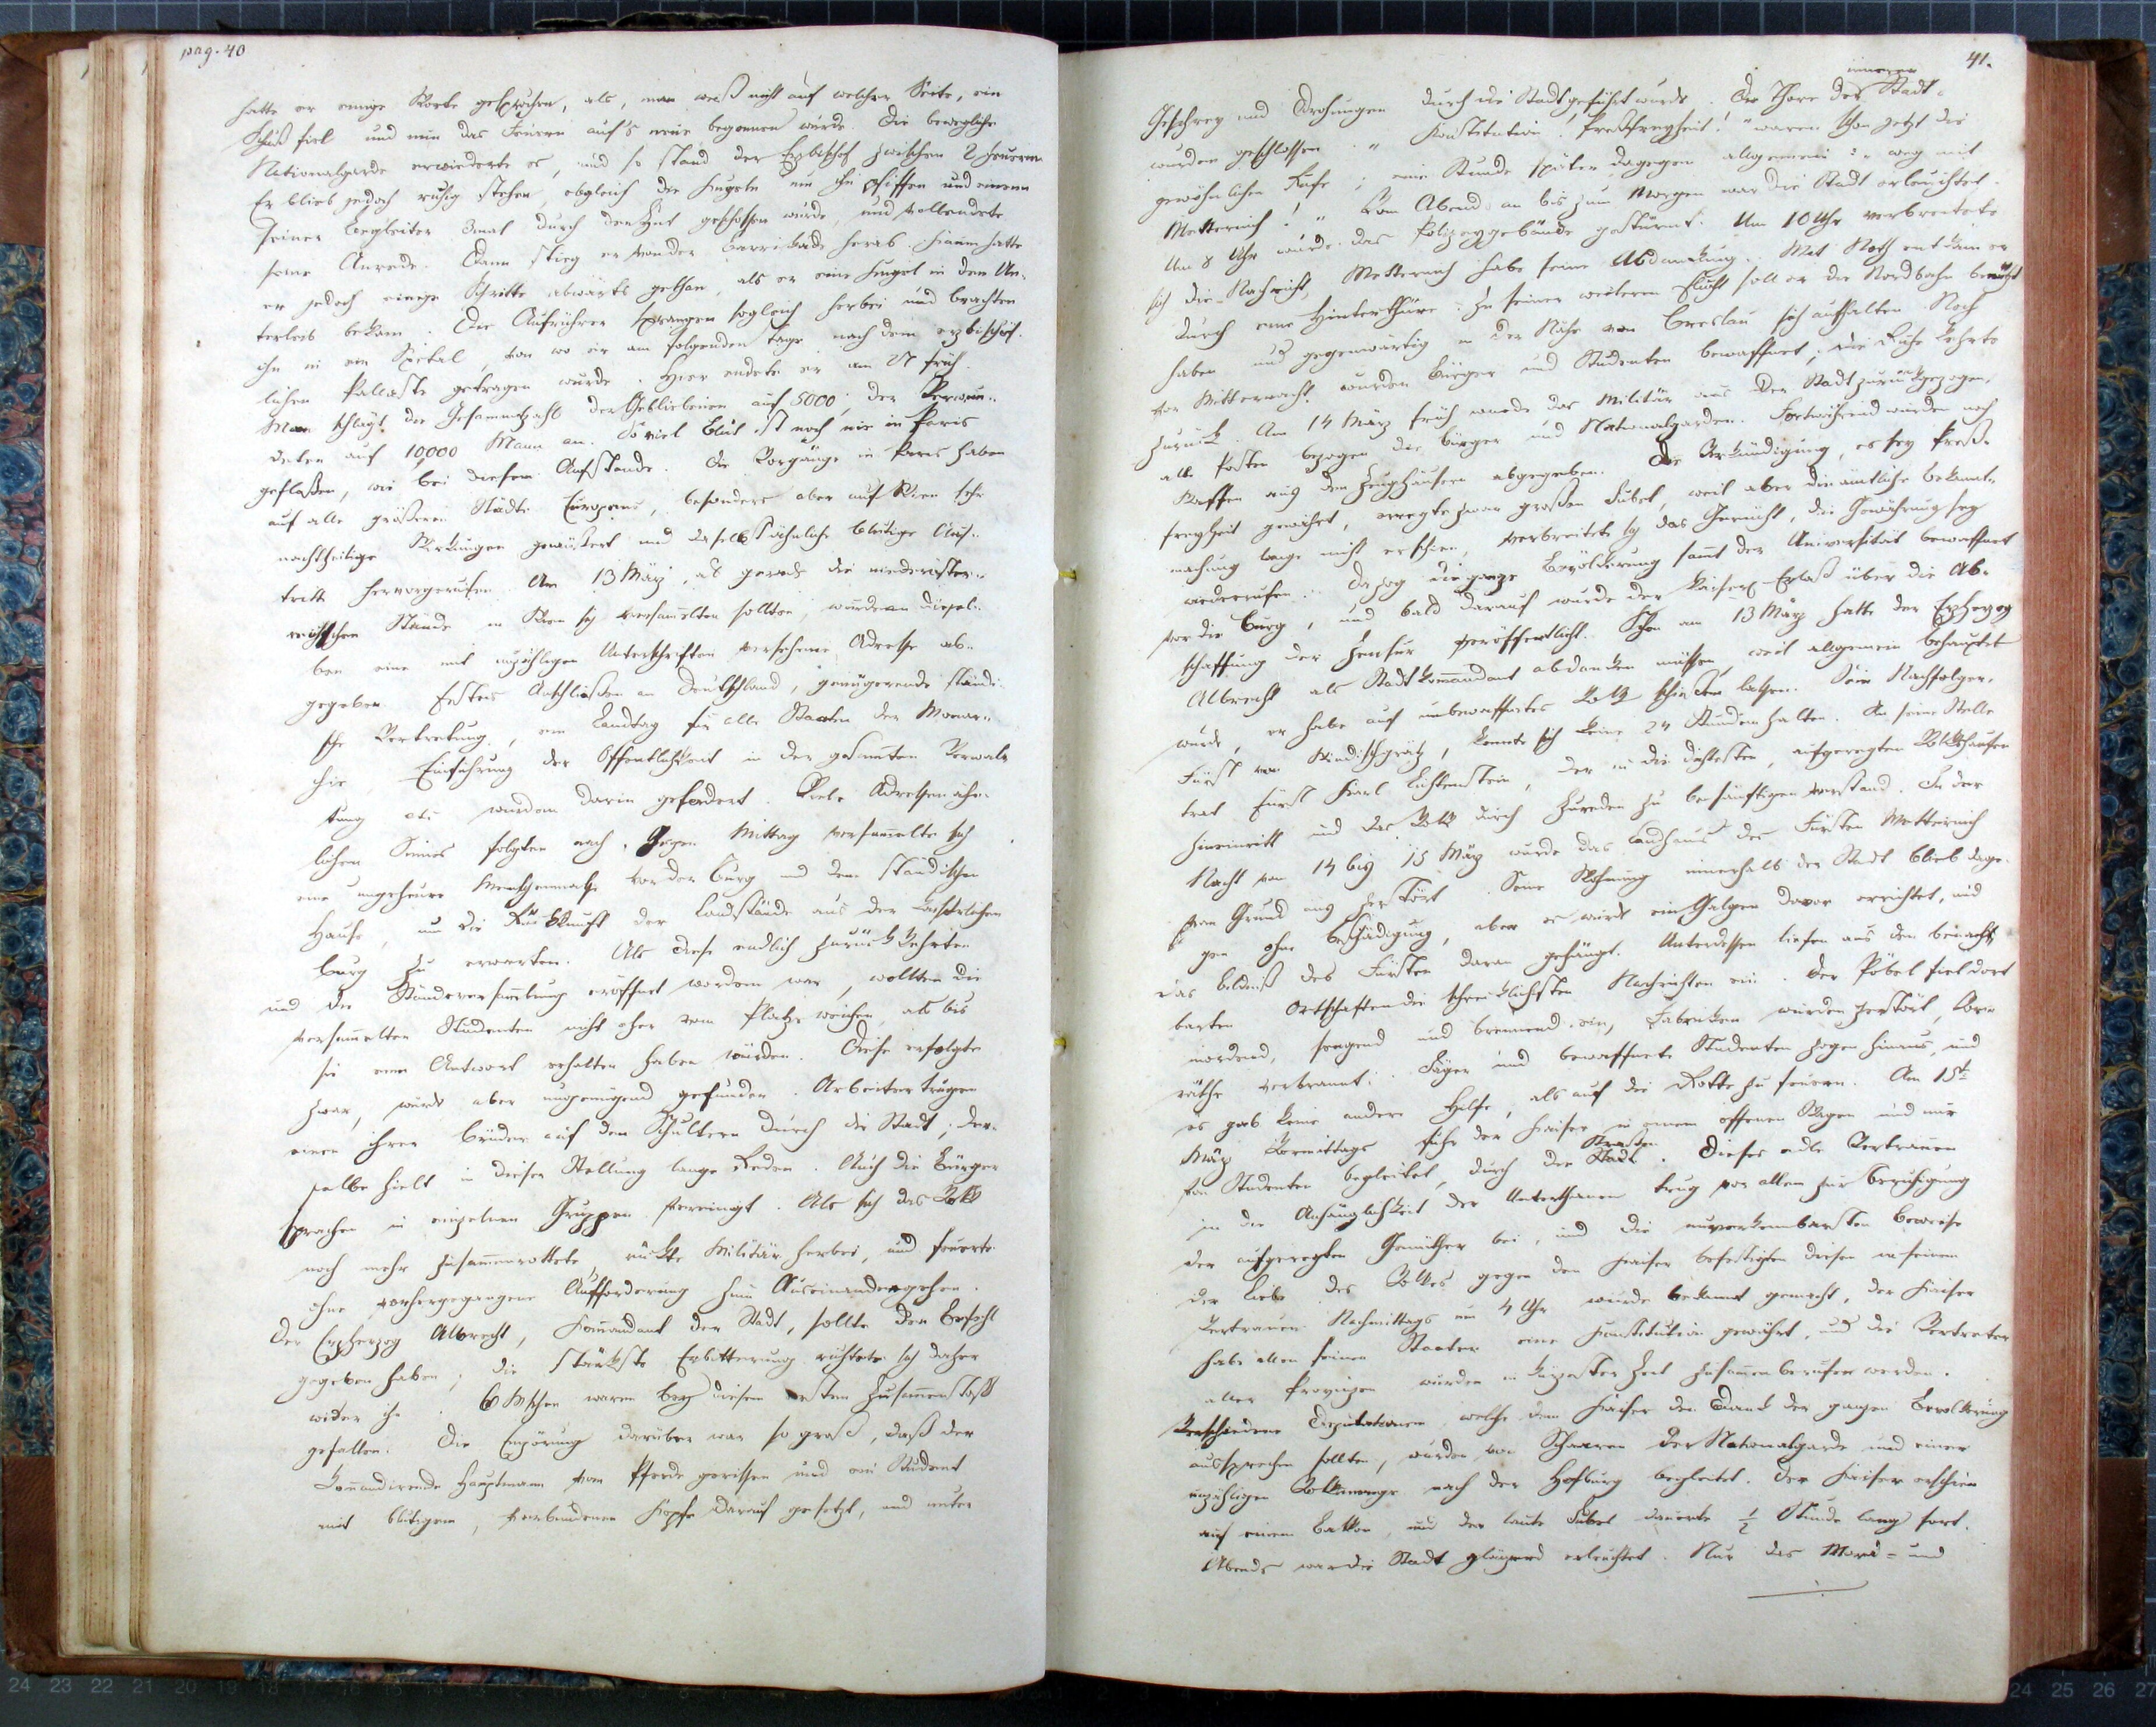 pag. 40
hatte er einige Worte gesprochen, als, man weiß nicht auf welcher Seite, ein
Schuß fiel und nun das Feuern auf's neue begonnen wurde. Die bewegliche
Nationalgarde erwiederte es, und so stand der Erzbischof zwischen 2 Feuern.
Er blieb jedoch ruhig stehen, obgleich die Kugeln um ihn pfiffen und einem
seiner Begleiter 3mal durch den Hut geschossen wurde, und vollendete
seine Anrede. Dann stieg er von der Barrikade herab. Kaum hatte
er jedoch einige Schritte abwärts gethan, als er eine Kugel in den Un-
terleib bekam. Die Aufrührer sprangen sogleich herbei und brachten
ihn in ein Spital, von wo er am folgenden Tage nach dem erzbischöf-
lichen Pallaste getragen wurde. Hier endete er am 27 früh.
Man schlägt die Gesammtzahl der Gebliebenen auf 5000, der Verwun-
deten auf 10,000 Mann an. So viel Blut ist noch nie in Paris
geflossen, wie bei diesem Aufstande. Die Vorgänge in Paris haben
auf alle größeren Städte Europens, besonders aber auf Wien sehr
nachtheilige Wirkungen geäußert und daselbst ähnliche blutige Auf-
tritte hervorgerufen. Am 13 März, als gerade die niederöster-
reichischen Stände in Wien sich versammelten sollten, wurde an diesel-
ben eine mit unzähligen Unterschriften versehene Adresse ab-
gegeben. Festes Anschließen an Deutschland, genügende ständi-
sche Vertretung, ein Landtag für alle Staaten der Monar-
chie, Einführung der Öffentlichkeit in der gesammten Verwal-
tung etc wurden darin gefordert. Viele Adressen ähn-
lichen Sinnes folgten nach. Gegen Mittag versammelte sich
eine ungeheure Menschenmasse vor der Burg und dem ständischen
Hause, um die Rückkunft der Landstände aus der kaiserlichen
Burg zu erwarten. Als diese endlich zurückkehrten
und die Ständeversammlung eröffnet worden war, wollten die
versammelten Studenten nicht eher vom Platze weichen, als bis
sie eine Antwort erhalten haben würden. Diese erfolgte
zwar, wurde aber ungenügend gefunden. Arbeiter trugen
einen ihrer Brüder auf den Schultern durch die Stadt; der-
selbe hielt in dieser Stellung lange Reden. Auch die Bürger
sprachen in einzelnen Gruppen vereinigt. Als sich das Volk
noch mehr zusammenrottete, rückte Militär herbei, und feuerte
ohne vorhergegangene Aufforderung zum Auseinandergehen.
Der Erzherzog Albrecht, Kommandant der Stadt, sollte den Befehl
gegeben haben; die stärkste Erbitterung richtete sich daher
wider ihn. 6 Menschen waren bey diesem ersten Zusammenstoß
gefallen. Die Empörung darüber war so groß, daß der
kommandirende Hauptmann vom Pferde gerissen und ein Student
mit blutigem, verbundenem Kopfe darauf gesetzt, und unter
41.
innern
Geschrey und Drohungen durch die Stadt geführt wurde. Die Thore der Stadt
wurden geschlossen. "Konstitution! Preßfreyheit!" waren schon jetzt die
gewöhnlichen Rufe; eine Stunde später dagegen allgemein: "weg mit
Metternich!" Vom Abend an bis zum Morgen war die Stadt erleuchtet.
Um 8 Uhr wurde das Polizeygebäude gestürmt. Um 10 Uhr verbreitete
sich die Nachricht, Metternich habe seine Abdankung. Mit Noth entkam er
durch eine Hinterthüre. Zu seiner weiteren Flucht soll er die Nordbahn benützt
haben und gegenwärtig in der Nähe von Breslau sich aufhalten. Noch
vor Mitternacht wurden Bürger und Studenten bewaffnet; die Ruhe kehrte
zurück. Am 14 März früh wurde das Militär aus der Stadt zurückgezogen,
alle Posten bezogen die Bürger und Nationalgarden. Fortwährend wurden noch
Waffen aus den Zeughäusern abgegeben. Die Verkündigung, es sey Preß-
freyheit gewährt, erregte zwar großen Jubel, weil aber die ämtliche Bekannt-
machung lange nicht erschien, verbreitete sich das Gerücht, die Gewährung sey
wiederrufen. Da zog die ganze Bevölkerung sammt der Universität bewaffnet
vor die Burg, und bald darauf wurde der kaiserl. Erlaß über die Ab-
schaffung der Zensur veröffentlicht. Schon am 13 März hatte der Erzherzog
Albrecht als Stadtkommandant abdanken müssen, weil allgemein behauptet
wurde, er habe auf unbewaffnetes Volk schießen lassen. Sein Nachfolger,
Fürst von Windischgrätz, konnte sich keine 24 Stunden halten. An seine Stelle
trat Fürst Karl Lichtenstein, der in die dichtesten, aufgeregten Volkshaufen
hineinritt und das Volk durch Zureden zu besänftigen verstand. In der
Nacht vom 14 bis 15 März wurde das Landhaus des Fürsten Metternich
von Grund aus zerstört. Seine Wohnung innerhalb der Stadt blieb dage-
gen ohne Beschädigung, aber es wurde ein Galgen davor errichtet, und
das Bildniß des Fürsten daran gehängt. Unterdessen liefen aus den benach-
barten Ortschaften die schrecklichsten Nachrichten ein. Der Pöbel fiel dort
mordend, sengend und brennend ein, Fabriken wurden zerstört, Vor-
räthe verbrannt. Jäger und bewaffnete Studenten zogen hinaus, und
es gab keine andere Hilfe, als auf die Rotte zu feuern. Am 15t
März Vormittags fuhr der Kaiser in einem offenen Wagen und nur
Straßen
von Studenten begleitet, durch die Stadt. Dieses edle Vertrauen
in die Anhänglichkeit der Unterthanen trug vor allem zur Beruhigung
der aufgeregten Gemüther bei, und die unverkennbarsten Beweise
der Liebe des Volkes gegen den Kaiser befestigten diesen in seinem
Vertrauen. Nachmittags um 4 Uhr wurde bekannt gemacht, der Kaiser
habe allen seinen Staaten eine Konstitution gewährt, und die Vertreter
aller Provinzen würden in kürzester Zeit zusammenberufen werden.
Verschiedene Deputationen, welche dem Kaiser den Dank der ganzen Bevölkerung
aussprechen sollten, wurden von Schaaren der Nationalgarde und einer
unzähligen Volksmenge nach der Hofburg begleitet. Der Kaiser erschien
auf einem Balkon, und der laute Jubel dauerte ½ Stunde lang fort.
Abends war die Stadt glänzend erleuchtet. Nur das Mord- und